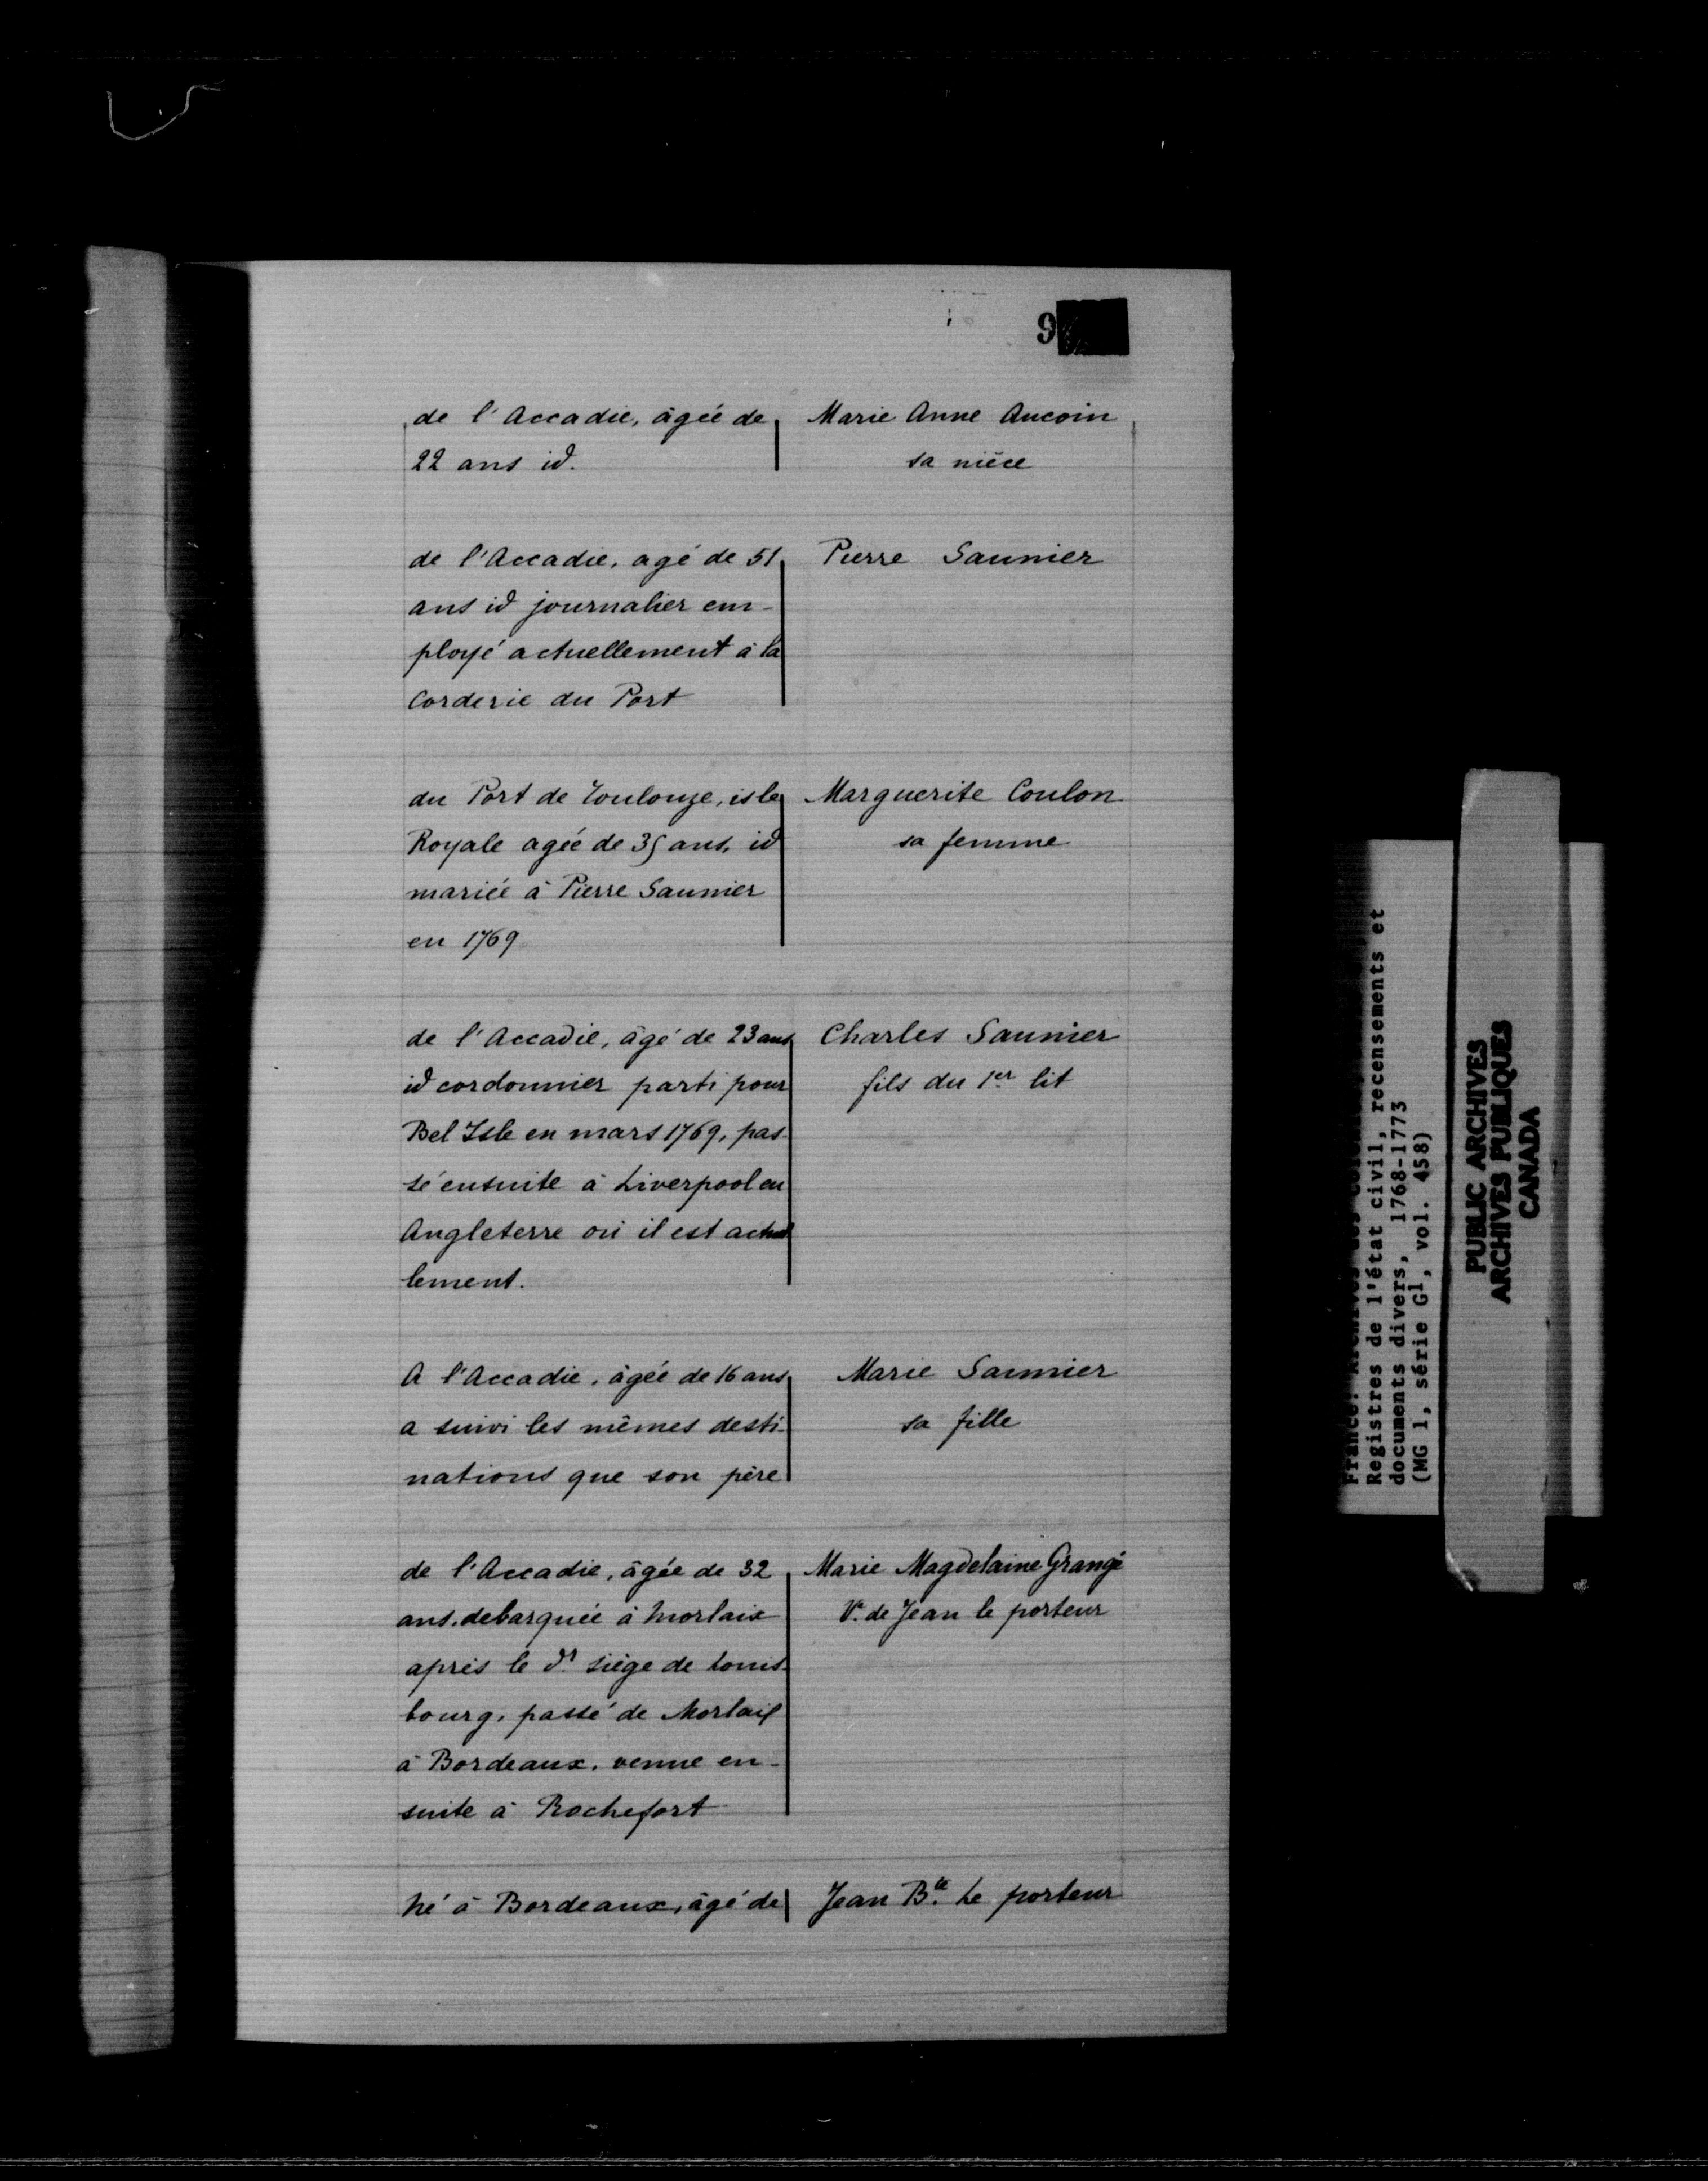 9
de l'Accadie, âgée de
22 ans id.
Marie Anne Aucoin
sa nièce
de l'Accadie, agé de 51
ans id journalier em-
ployé actuellement à la
Corderie du Port
Pierre Saunier
du Port de Toulouze, isle
Royale agée de 35 ans, id
mariée à Pierre Saunier
en 1769
Marguerite Coulon
sa femme
de l'Accadie, âgé de 23 ans
id cordonnier parti pour
Bel Isle en mars 1769, pas-
sé ensuite à Liverpool en
Angleterre où il est actuel
lement.
Charles Saunier
fils du 1er lit
A l'Accadie, âgée de 16 ans
a suivi les mêmes desti-
nations que son père
Marie Saunier
sa fille
de l'Accadie, âgée de 32
ans, debarquée à Morlaix
après le dr siège de Louis-
bourg, passé de Morlaix
à Bordeaux, venue en-
suite à Rochefort
Marie Magdelaine Grangé
Ve de Jean le porteur
Né à Bordeaux, âgé de
Jean Bte Le porteur
France: Archives des Colonies
Registres de l'état civil, recensements et
documents divers, 1768-1773
(MG 1, série G1, vol. 458)
PUBLIC ARCHIVES
ARCHIVES PUBLIQUES
CANADA